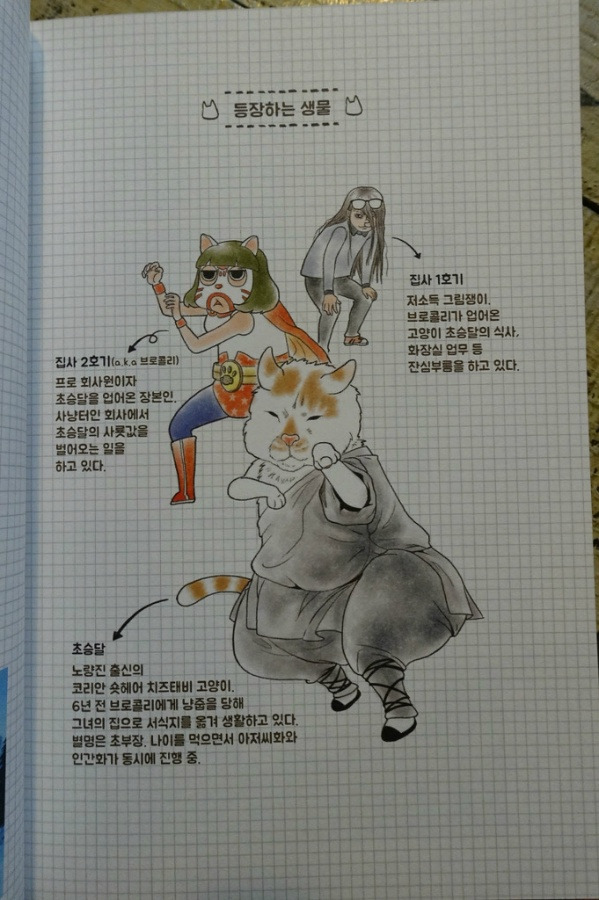 등장하는 생물
집사 1호기
저소득 그림쟁이.
브로콜리가 업어온
고양이 초승달의 식사,
화장실 업무 등
잔심부름을 하고 있다.
집사 2호기(a.k.a 브로콜리)
프로 회사원이자
초승달을 업어온 장본인.
사냥터인 회사에서
초승달의 사룟값을
벌어오는 일을
하고 있다.
초승달
노량진 출신의
코리안 숏헤어 치즈태비 고양이.
6년 전 브로콜리에게 냥줍을 당해
그녀의 집으로 서식지를 옮겨 생활하고 있다.
별명은 초부장. 나이를 먹으면서 아저씨화와
인간화가 동시에 진행 중.